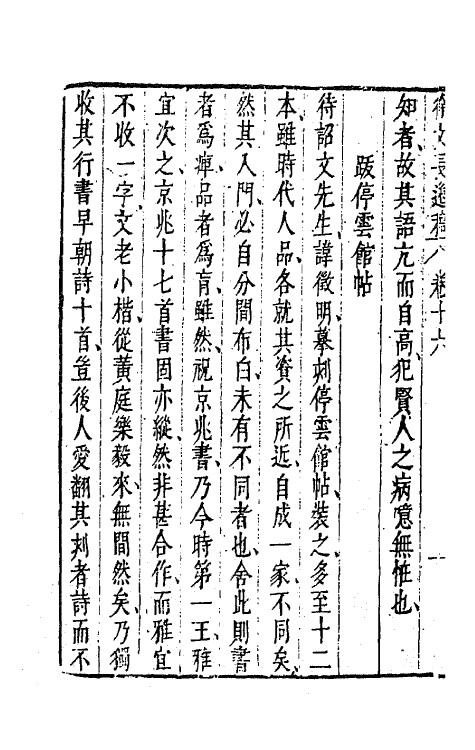 徐文長逸稿 卷十六
知者、故其語亢而自高、犯賢人之病、噫、無恠也、
跋停雲館帖
待詔文先生、諱徵明、摹刻停雲館帖、裝之、多至十二
本、雖時代人品、各就其資之所近、自成一家、不同矣、
然其入門、必自分間布白、未有不同者也、舍此則書
者爲痺、品者爲盲、雖然、祝京兆書、乃今時第一、王雅
宜次之、京兆十七首書固亦縱、然非甚合作、而雅宜
不收一字、文老小楷、從黃庭樂毅來、無間然矣、乃獨
收其行書早朝詩十首、豈後人愛翻其刻者詩而不